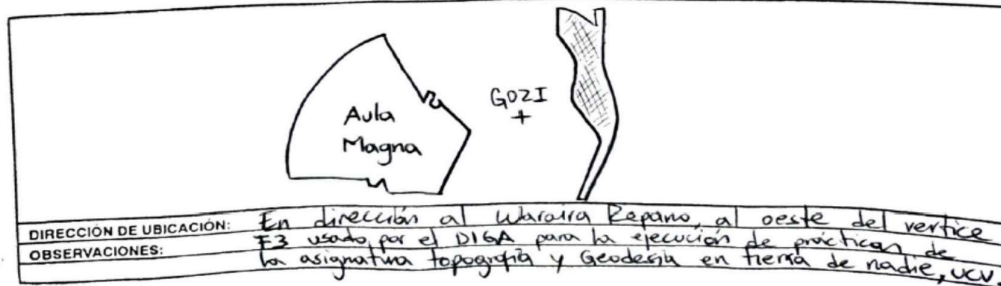 Aula
Magna
G02I
+
DIRECCIÓN DE UBICACIÓN: En dirección al Waraira Repano, al oeste del vertice
OBSERVACIONES: F3 usado por el DIGA para la ejecución de prácticas de
la asignatura topografía y Geodesia en tierra de nadie, UCV.